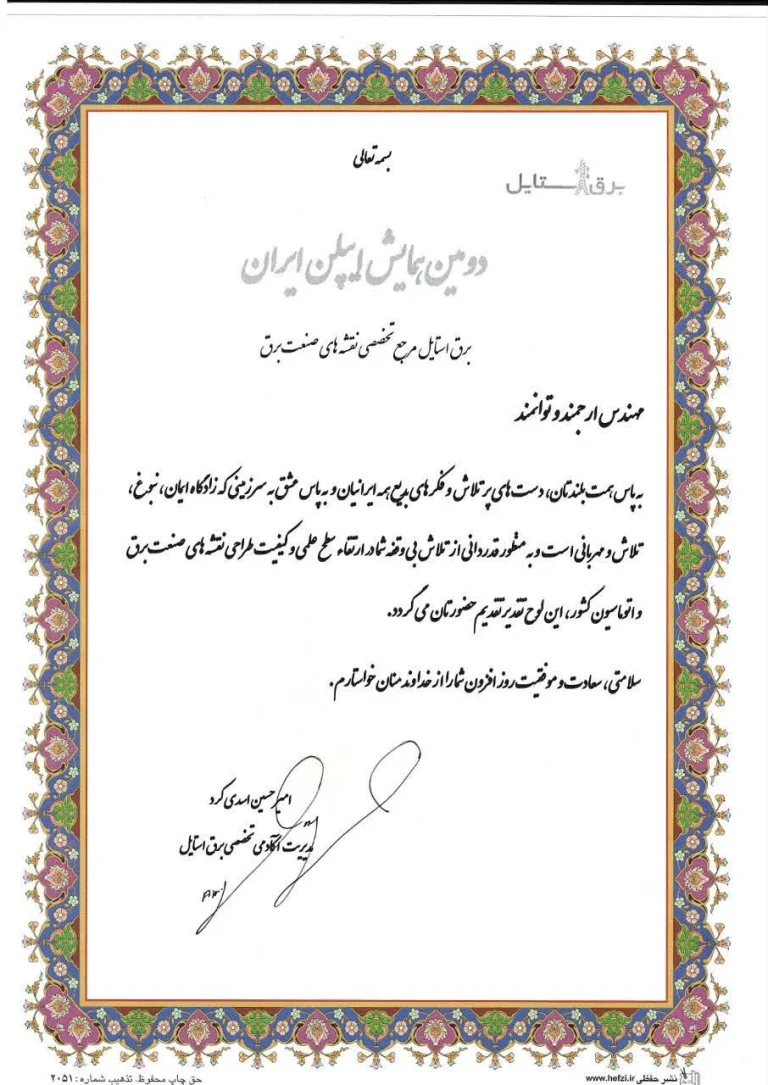 بسمه تعالی
برق استایل
دومین همایش ایپلن ایران
برق استایل مرجع تخصصی نقشه های صنعت برق
مهندس ارجمند و توانمند
به پاس همت بلندتان، دست های پر تلاش و فکر های بدیع همه ایرانیان و به پاس عشق به سرزمینی که زادگاه ایمان، نبوغ،
تلاش و مهربانی است و به منظور قدردانی از تلاش بی وقفه شما در ارتقاء سطح علمی و کیفیت طراحی نقشه های صنعت برق
و اتوماسیون کشور، این لوح تقدیر تقدیم حضورتان می گردد.
سلامتی، سعادت و موفقیت روز افزون شما را از خداوند منان خواستارم.
امیر حسین اسدی کرد
مدیریت آکادمی تخصصی برق استایل
نشر حفظی www.hefzi.ir
حق چاپ محفوظ. تذهیب شماره : ۲۰۵۱